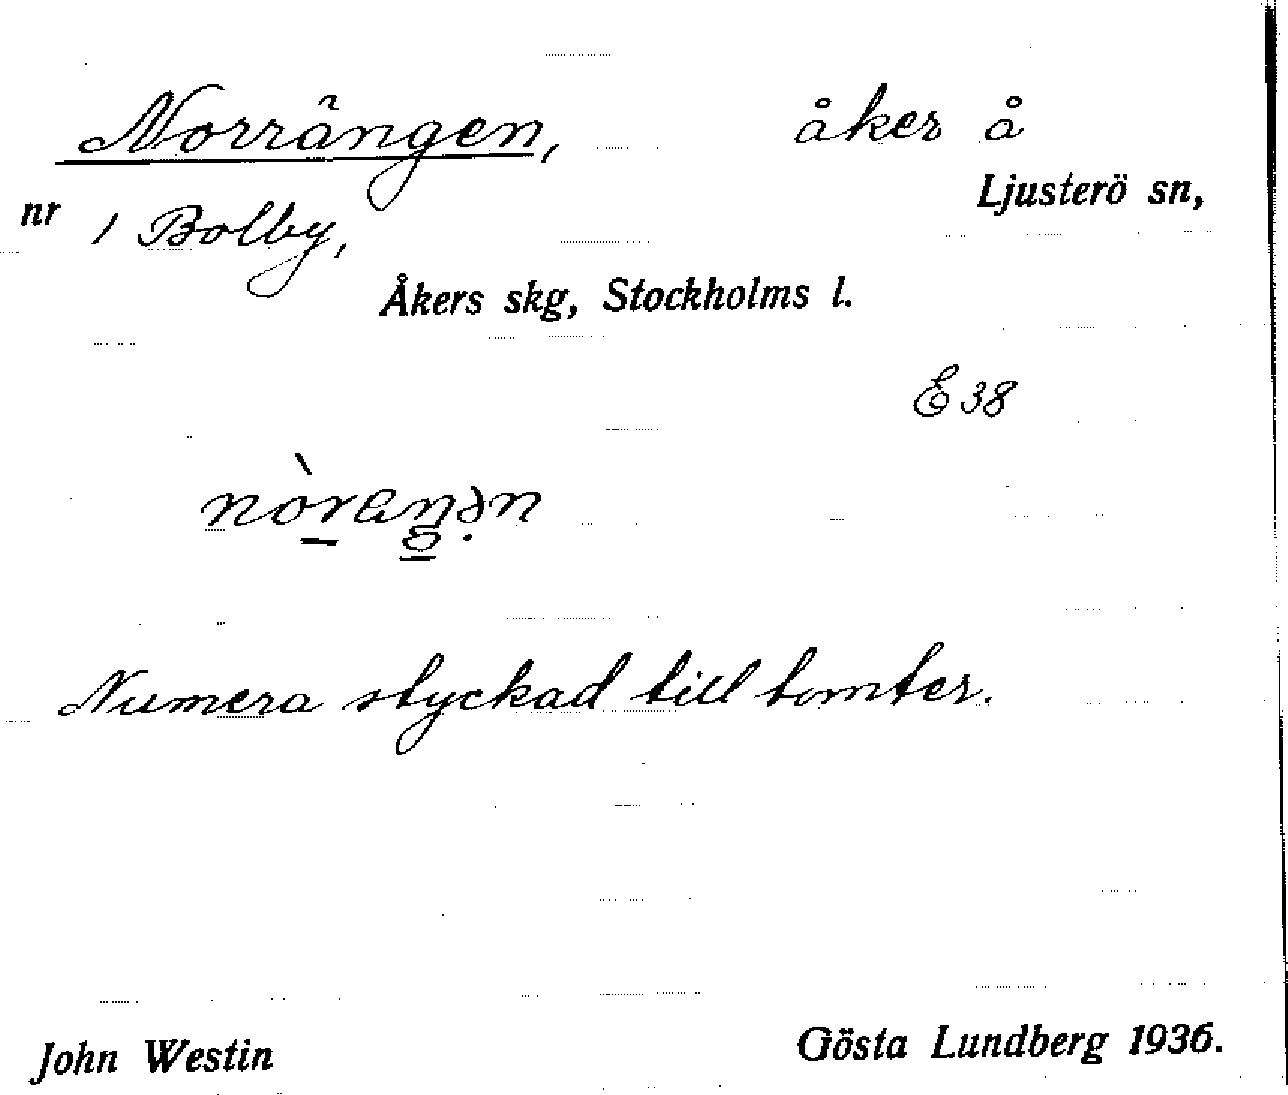 Norrängen, åker å
Ljusterö sn,
nr 1 Bolby,
Åkers skg, Stockholms l.
E 38
Numera styckad till tomter.
John Westin Gösta Lundberg 1936.